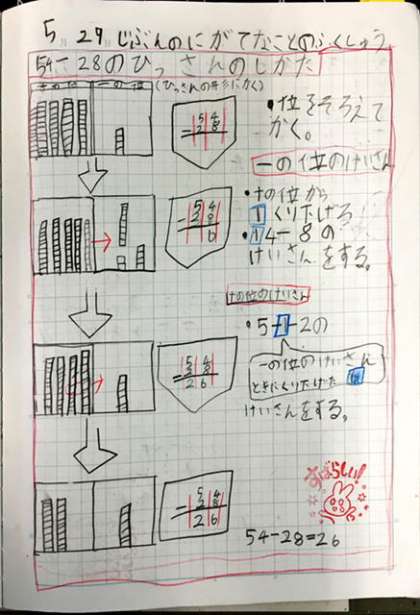 5 29 じぶんのにがてなことのふくしゅう
54-28のひっさんのしかた
十の位 一の位 (ひっさんの形にかく)
54
-28
・位をそろえて
かく。
一の位のけいさん
・十の位から
1くり下げる
・14-8の
けいさんをする。
54
-28
6
十の位のけいさん
・5-1-2の
一の位のけいさん
ときにくり下げた
けいさんをする。
54
-28
26
54
-28
26
すばらしい!
54-28=26